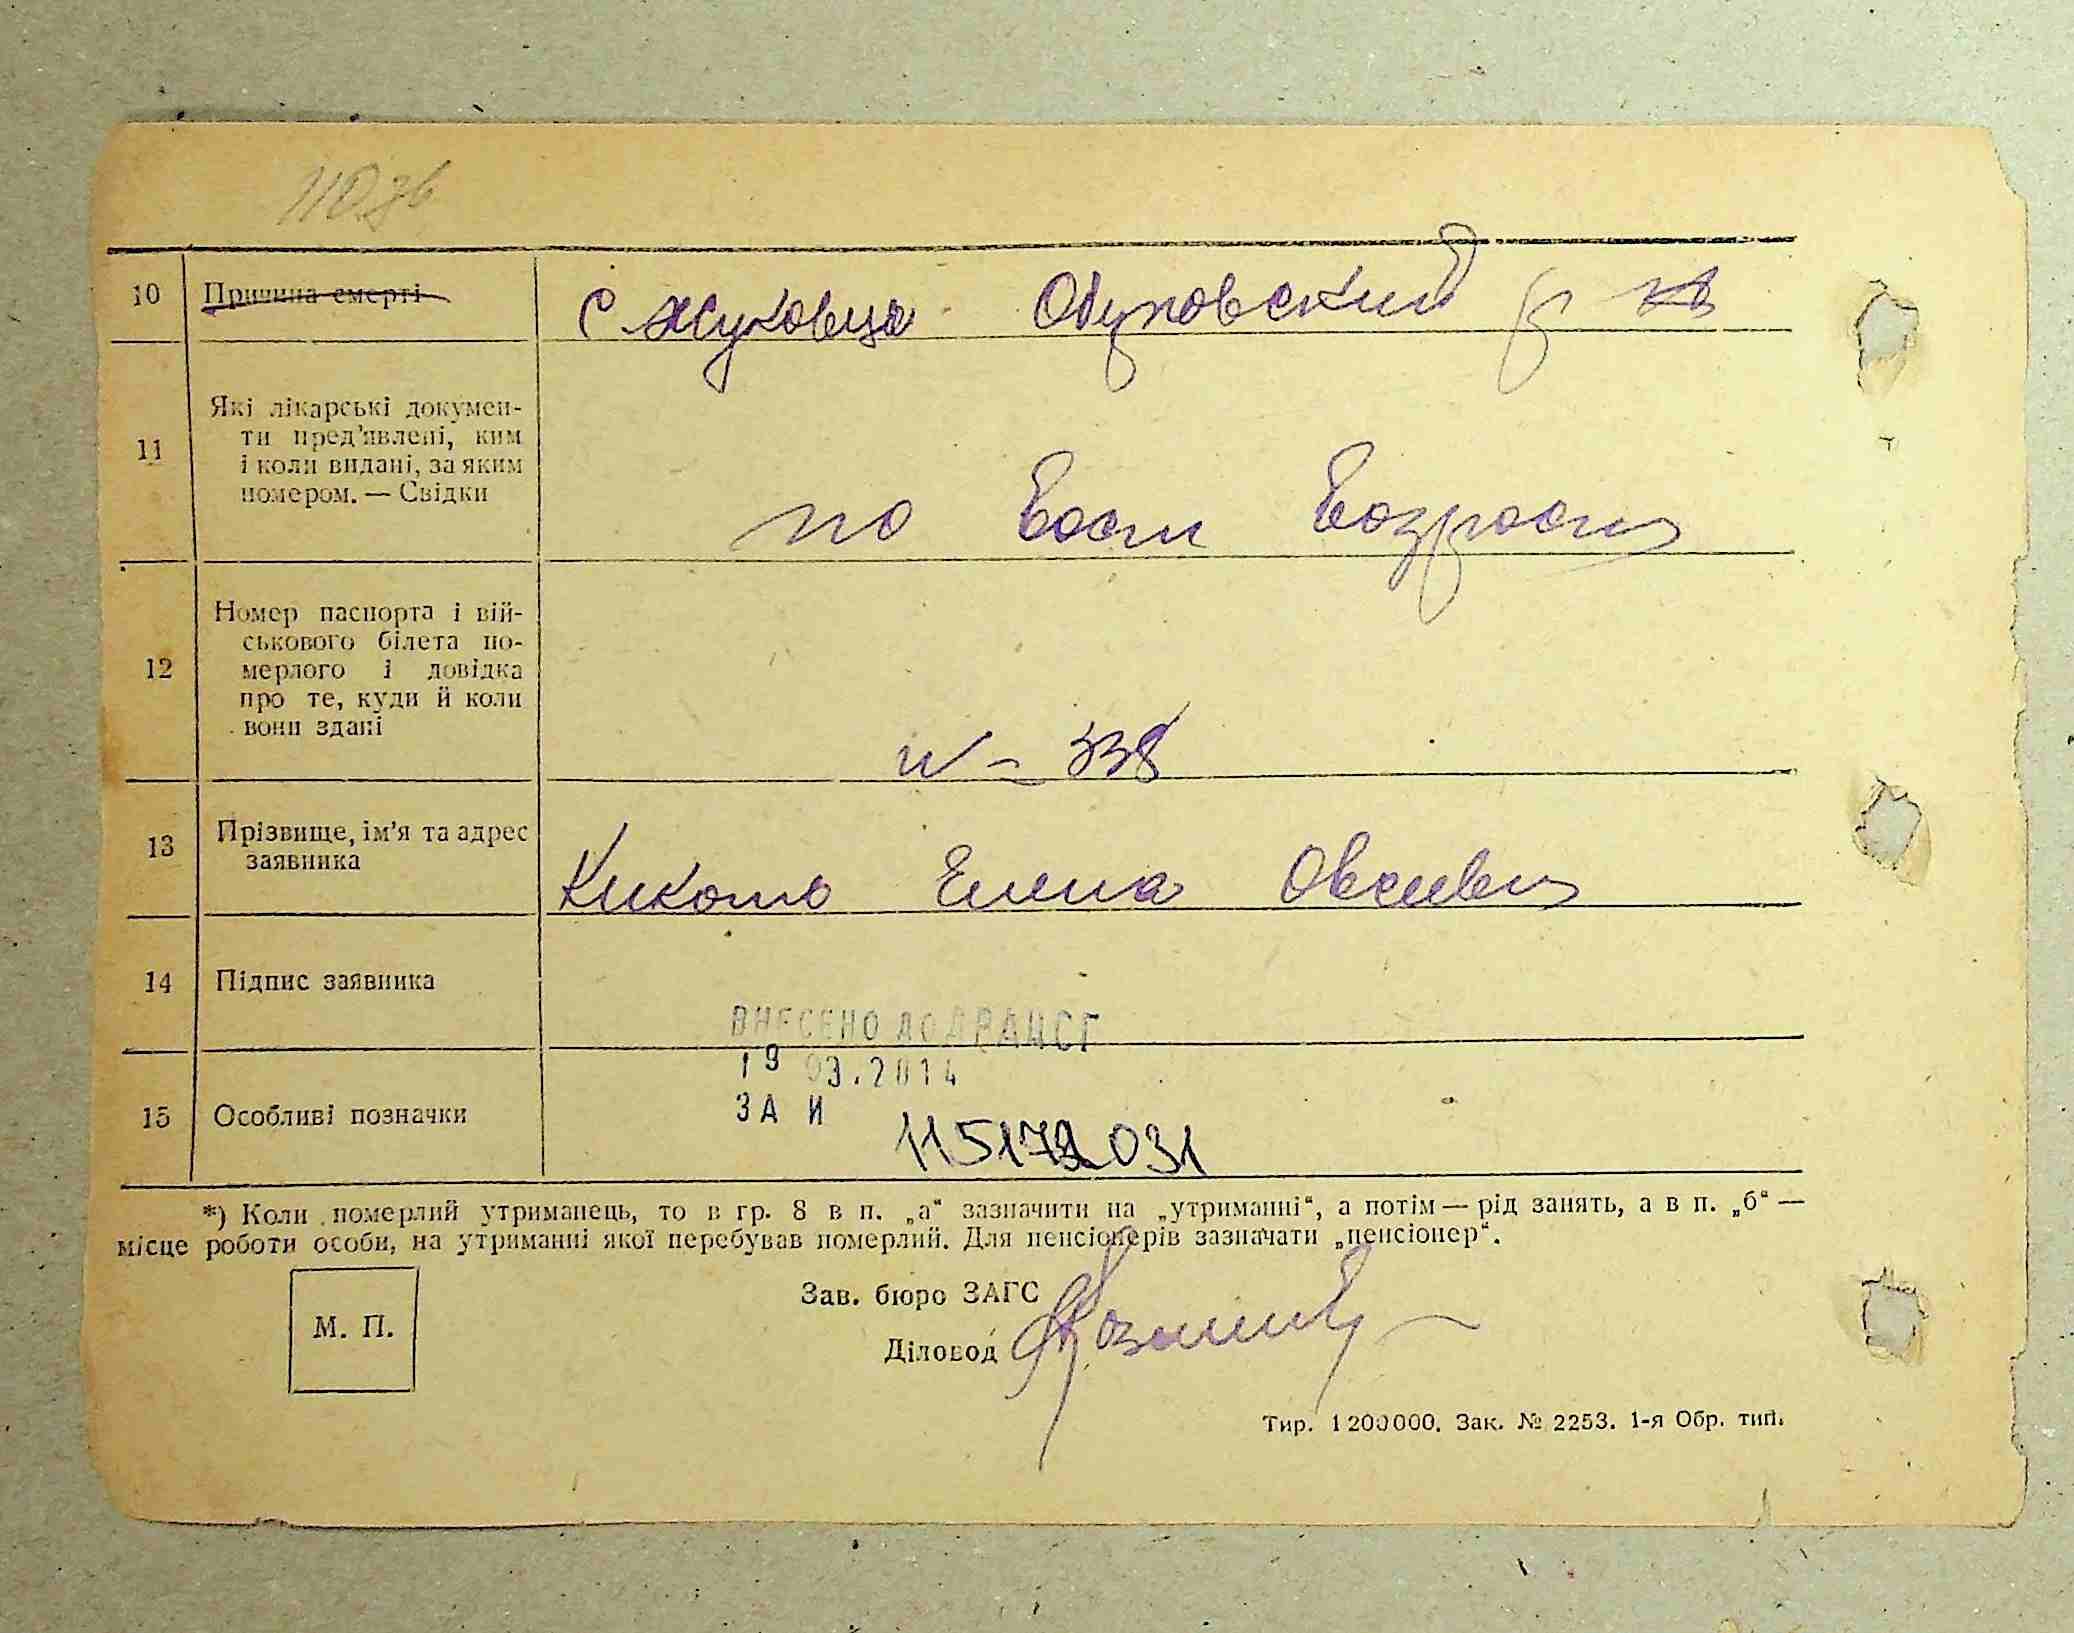 10 Причина смерті
с Жуковци Обуховский р
11 Які лікарські докумен-
ти пред’явлені, ким
і коли видані, за яким
номером. — Свідки
по
12 Номер паспорта і вій-
ськового білета по-
мерлого і довідка
про те, куди й коли
вони здані
N – 338
13 Прізвище, ім’я та адрес
заявника
Елена
14 Підпис заявника
ВНЕСЕНО ДО ДРАЦСГ
19 03.2014
15 Особливі позначки
ЗА И
*) Коли померлий утриманець, то в гр. 8 в п. „а“ зазначити на „утриманні“, а потім — рід занять, а в п. „б“ —
місце роботи особи, на утриманні якої перебував померлий. Для пенсіонерів зазначати „пенсіонер“.
М. П.
Зав. бюро ЗАГС
Діловод
Тир. 1200000. Зак. № 2253. 1-я Обр. тип.